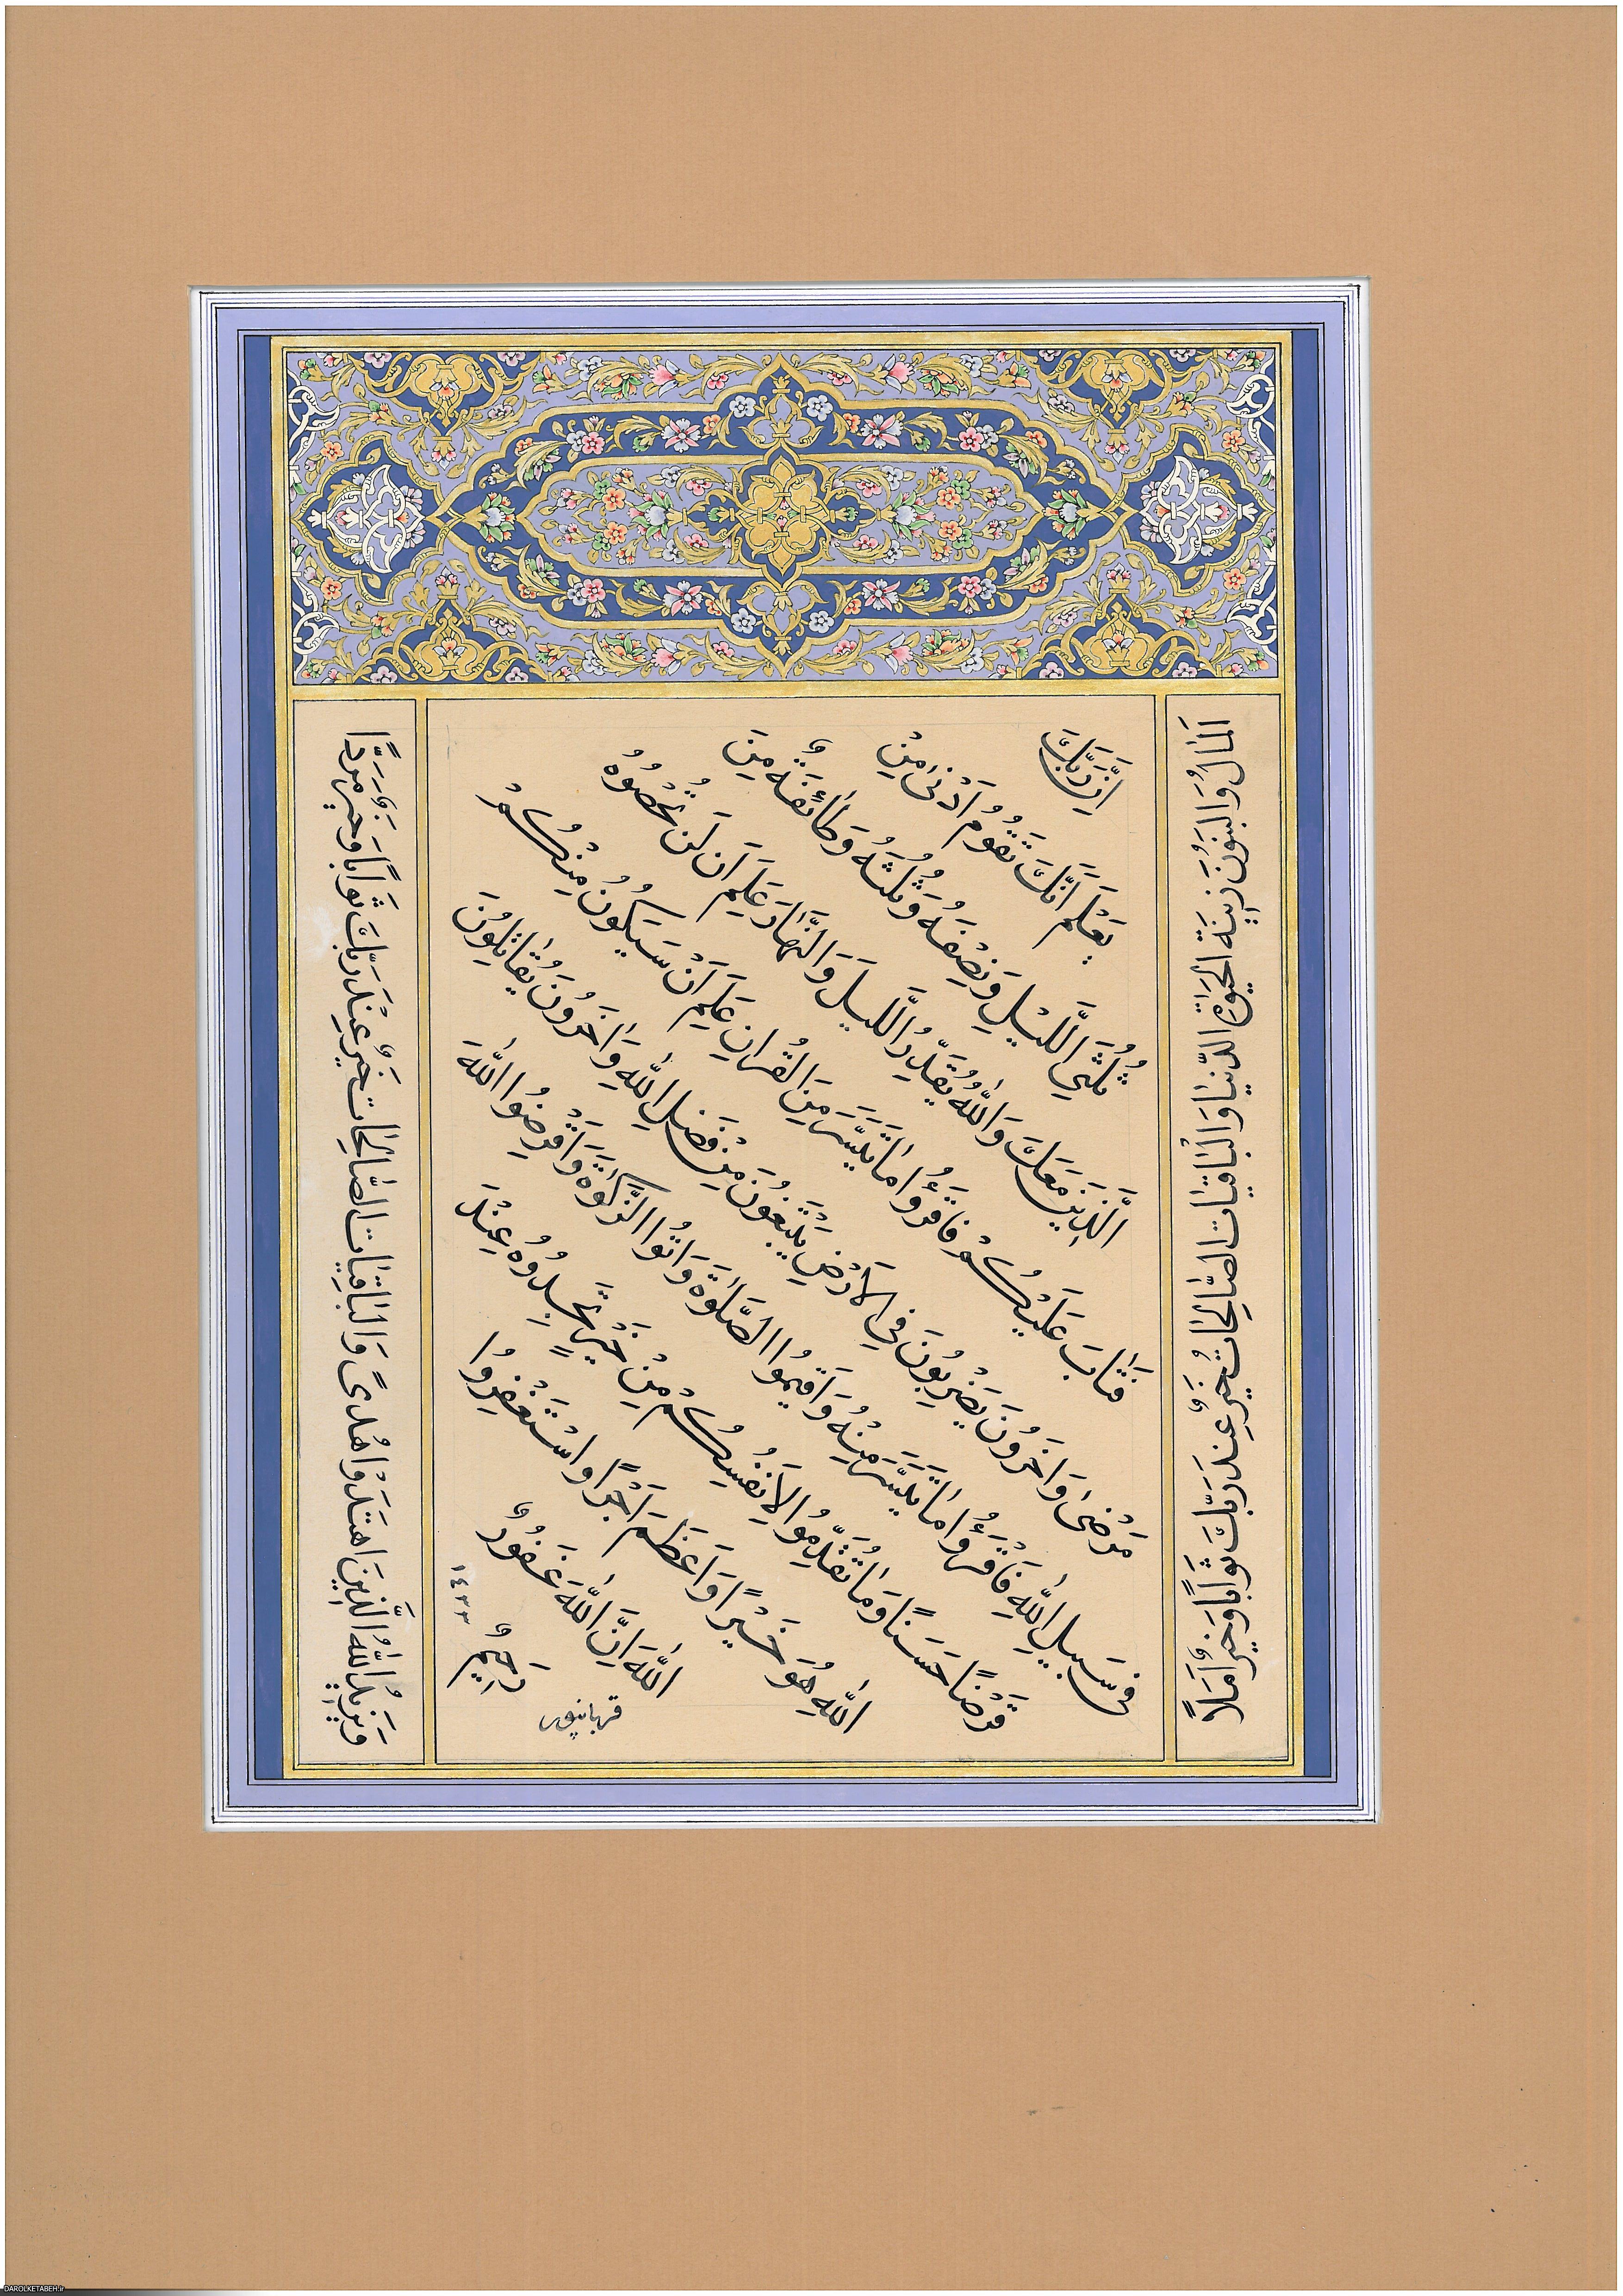 اَلْمَالُ وَالْبَنُونَ زِينَةُ الْحَيٰوةِ الدُّنْيَا وَالْبَاقِيَاتُ الصَّالِحَاتُ خَيْرٌ عِنْدَ رَبِّكَ ثَوَابًا وَخَيْرٌ اَمَلًا
اِنَّ رَبَّكَ
يَعْلَمُ اَنَّكَ تَقُومُ اَدْنىٰ مِنْ
ثُلُثَيِ اللَّيْلِ وَنِصْفَهُ وَثُلُثَهُ وَطَائِفَةٌ مِنَ
الَّذِينَ مَعَكَ وَاللّٰهُ يُقَدِّرُ اللَّيْلَ وَالنَّهَارَ عَلِمَ اَنْ لَنْ تُحْصُوهُ
فَتَابَ عَلَيْكُمْ فَاقْرَؤُا مَا تَيَسَّرَ مِنَ الْقُرانِ عَلِمَ اَنْ سَيَكُونُ مِنْكُمْ
مَرْضىٰ وَاخَرُونَ يَضْرِبُونَ فِي الْاَرْضِ يَبْتَغُونَ مِنْ فَضْلِ اللّٰهِ وَاخَرُونَ يُقَاتِلُونَ
فِي سَبِيلِ اللّٰهِ فَاقْرَؤُا مَا تَيَسَّرَ مِنْهُ وَاَقِيمُوا الصَّلٰوةَ وَاتُوا الزَّكٰوةَ وَاَقْرِضُوا اللّٰهَ
قَرْضًا حَسَنًا وَمَا تُقَدِّمُوا لِاَنْفُسِكُمْ مِنْ خَيْرٍ تَجِدُوهُ عِنْدَ
اللّٰهِ هُوَ خَيْرًا وَاَعْظَمَ اَجْرًا وَاسْتَغْفِرُوا
اللّٰهَ اِنَّ اللّٰهَ غَفُورٌ
رَحِيمٌ
١٤٣٣
قربانپور
وَيَزِيدُ اللّٰهُ الَّذِينَ اهْتَدَوْا هُدًى وَالْبَاقِيَاتُ الصَّالِحَاتُ خَيْرٌ عِنْدَ رَبِّكَ ثَوَابًا وَخَيْرٌ مَرَدًّا
DAROLKETABEH.ir